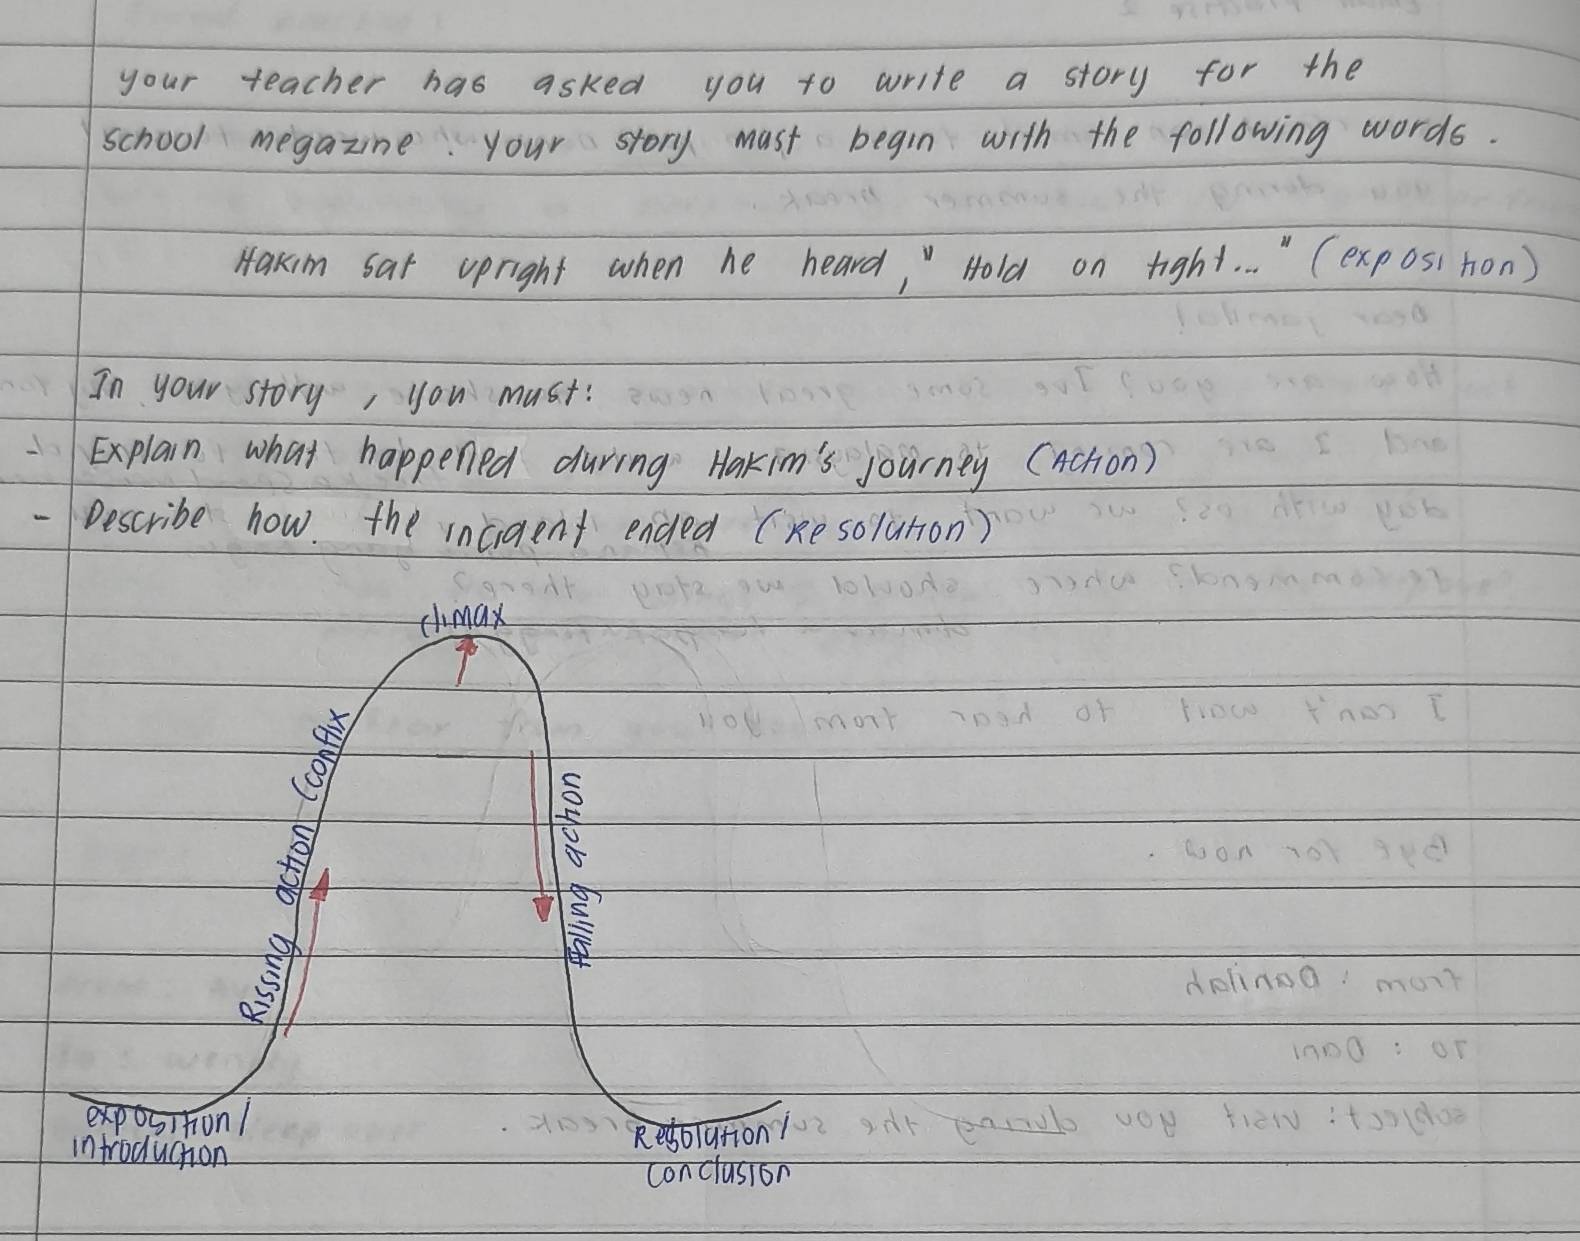 your teacher has asked you to write a story for the
school megazine. Your story must begin with the following words.
Hakim sat upright when he heard, "Hold on tight..." (exposition)
In your story, you must:
- Explain what happened during Hakim's journey (Action)
- Describe how. the incident ended (Resolution)
climax
Rissing action (conflix
falling action
exposition/
introduction
Resolution/
conclusion